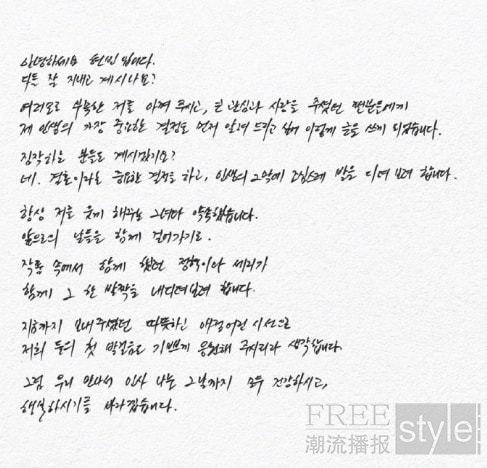 안녕하세요 현빈 입니다.
다들 잘 지내고 계시나요?
여러모로 부족한 저를 아껴 주시고, 큰 관심과 사랑을 주셨던 팬분들에게
제 인생의 가장 중요한 결정을 먼저 알려 드리고 싶어 이렇게 글을 쓰게 되었습니다.
짐작하실 분들도 계시겠지요?
네. 결혼이라는 중요한 결정을 하고, 인생의 2막에 조심스레 발을 디뎌 보려 합니다.
항상 저를 웃게 해주는 그녀와 약속했습니다.
앞으로의 날들을 함께 걸어가기로.
작품 속에서 함께 했던 정혁이와 세리가
함께 그 한 발짝을 내디뎌보려 합니다.
지금까지 보내주셨던 따뜻하신 애정어린 시선으로
저희 둘의 첫 발걸음도 기쁘게 응원해 주시리라 생각합니다.
그럼 우리 만나서 인사 나눌 그날까지 모두 건강하시고,
행복하시기를 바라겠습니다.
FREE style
潮流播报